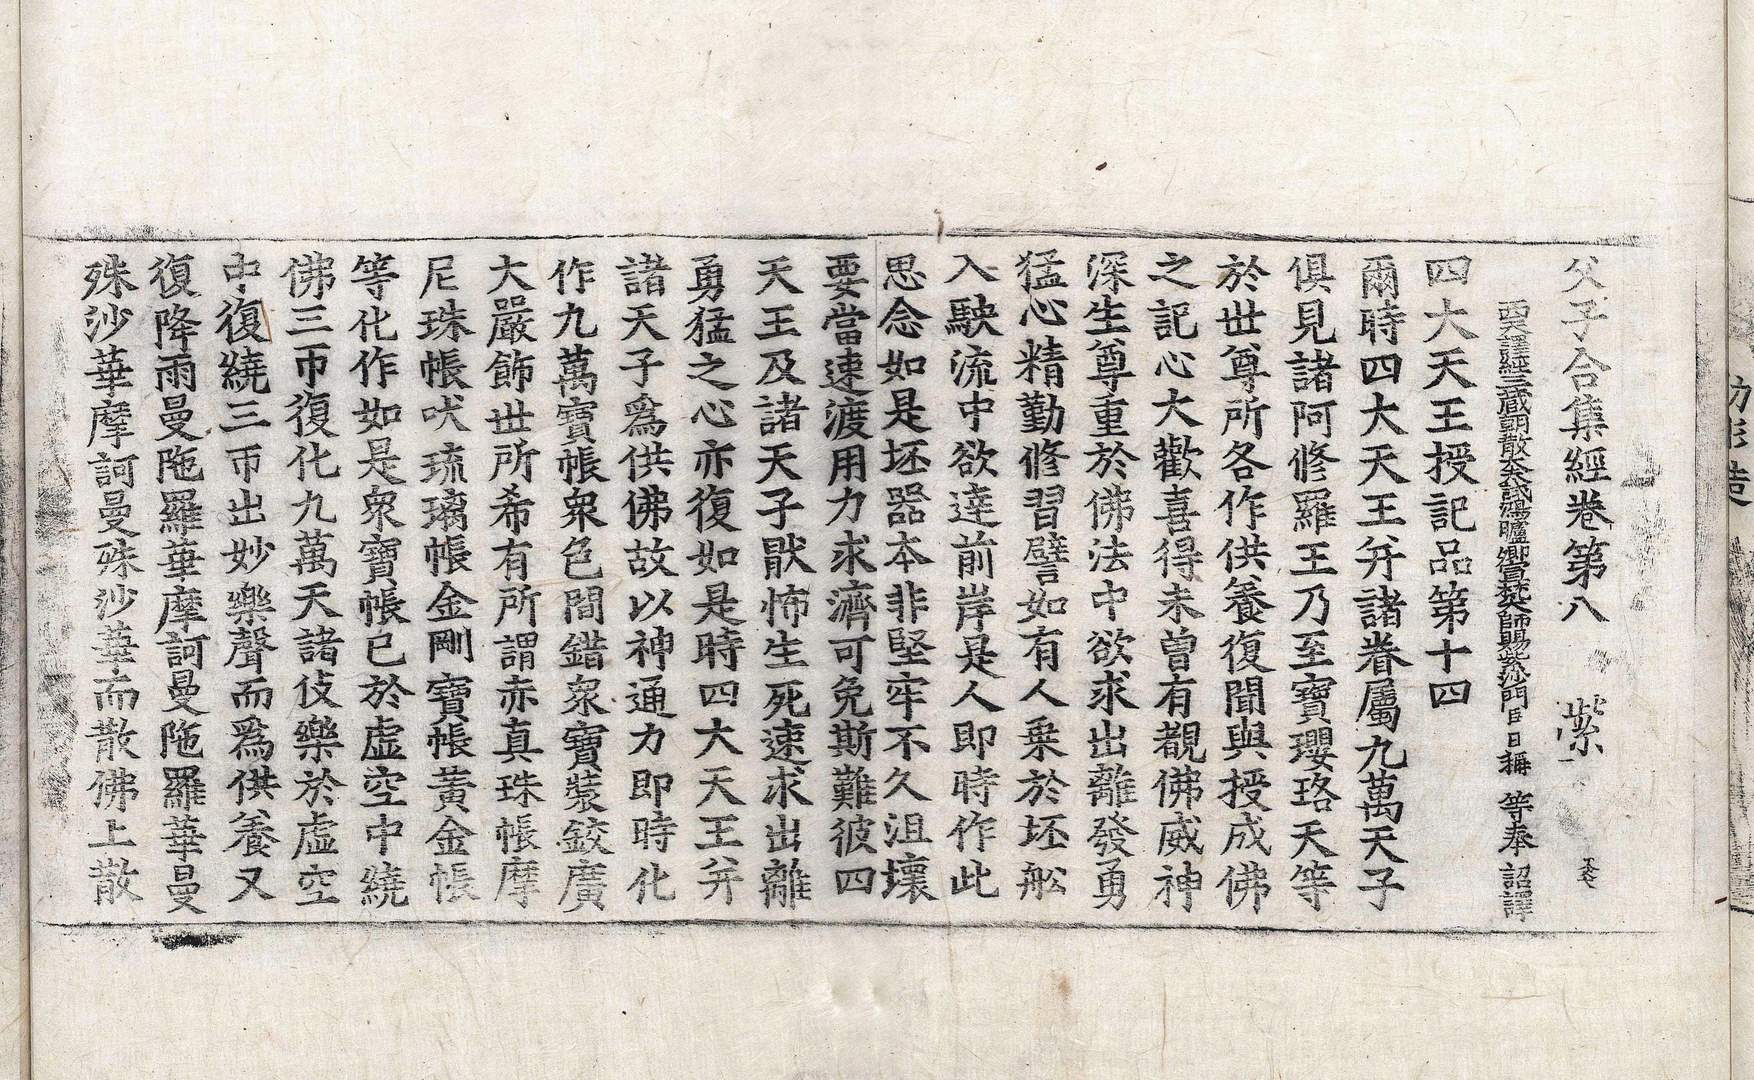 父子合集經卷第八 縈
西天譯經三藏朝散大夫試鴻臚卿宣梵大師賜紫沙門臣日稱等奉 詔譯
四大天王授記品第十四
爾時四大天王并諸眷屬九萬天子
俱見諸阿修羅王乃至寶瓔珞天等
於世尊所各作供養復聞與授成佛
之記心大歡喜得未曾有覩佛威神
深生尊重於佛法中欲求出離發勇
猛心精勤修習譬如有人乗於坯舩
入駛流中欲達前岸是人即時作此
思念如是坯器本非堅牢不久沮壞
要當速渡用力求濟可免斯難彼四
天王及諸天子猒怖生死速求出離
勇猛之心亦復如是時四大天王并
諸天子爲供佛故以神通力即時化
作九萬寶帳衆色間錯衆寶裝鉸廣
大嚴飾世所希有所謂赤真珠帳摩
尼珠帳吠琉璃帳金剛寶帳黃金帳
等化作如是衆寶帳已於虛空中繞
佛三帀復化九萬天諸伎樂於虛空
中復繞三帀出妙樂聲而爲供養又
復降雨曼陁羅華摩訶曼陁羅華曼
殊沙華摩訶曼殊沙華而散佛上散